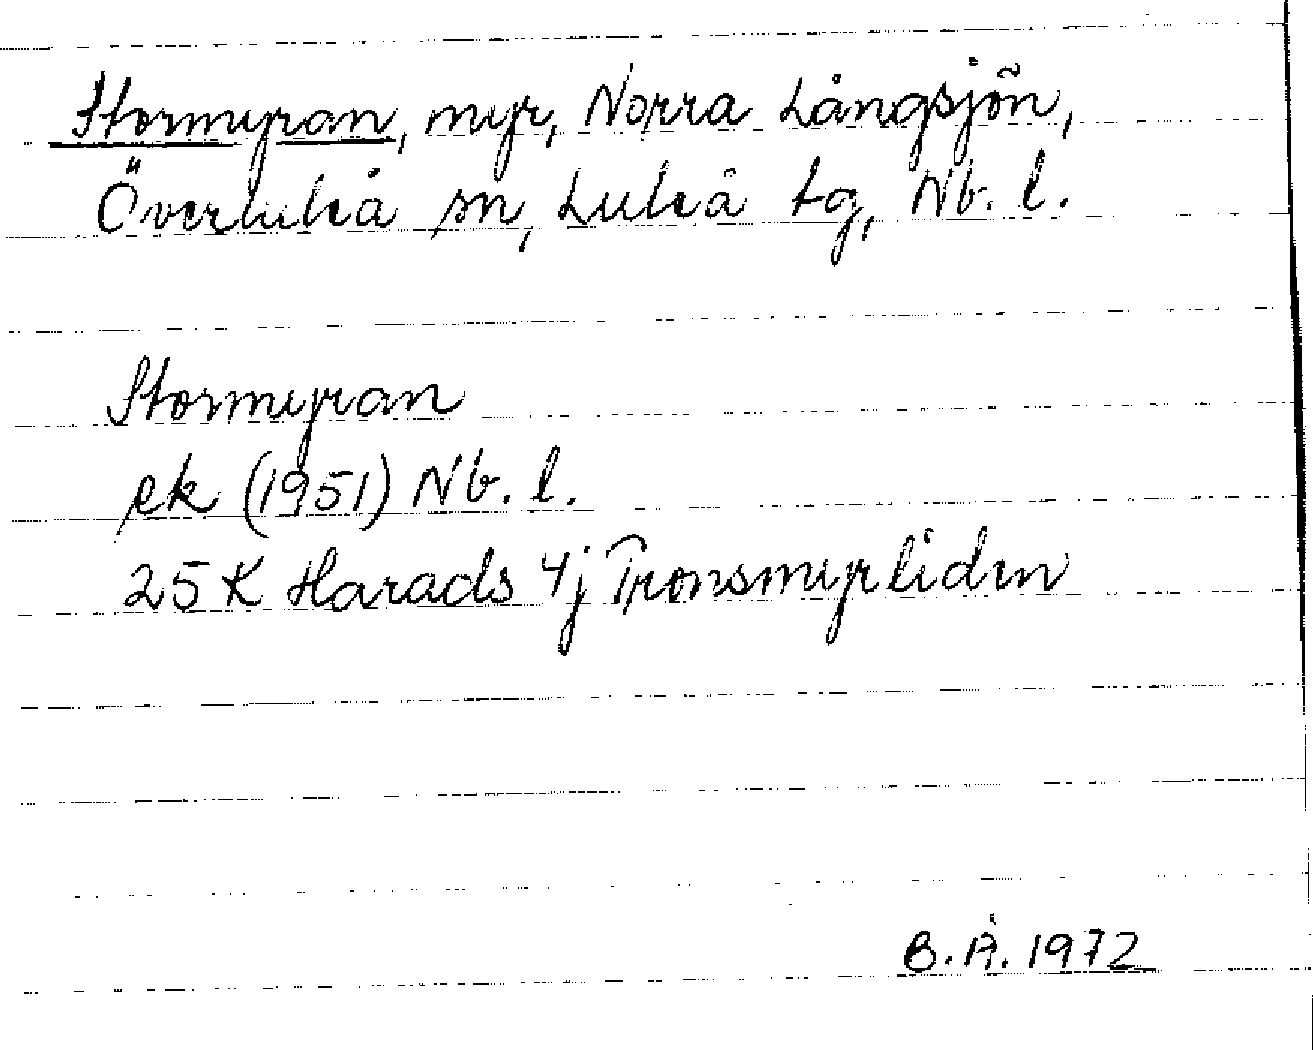 Stormyran, myr, Norra Långsjön,
Överluleå sn, Luleå tg, Nb. l.
Stormyran
ek (1951) Nb. l.
25 K Harads 4j Tronsmyrliden
B.Å. 1972